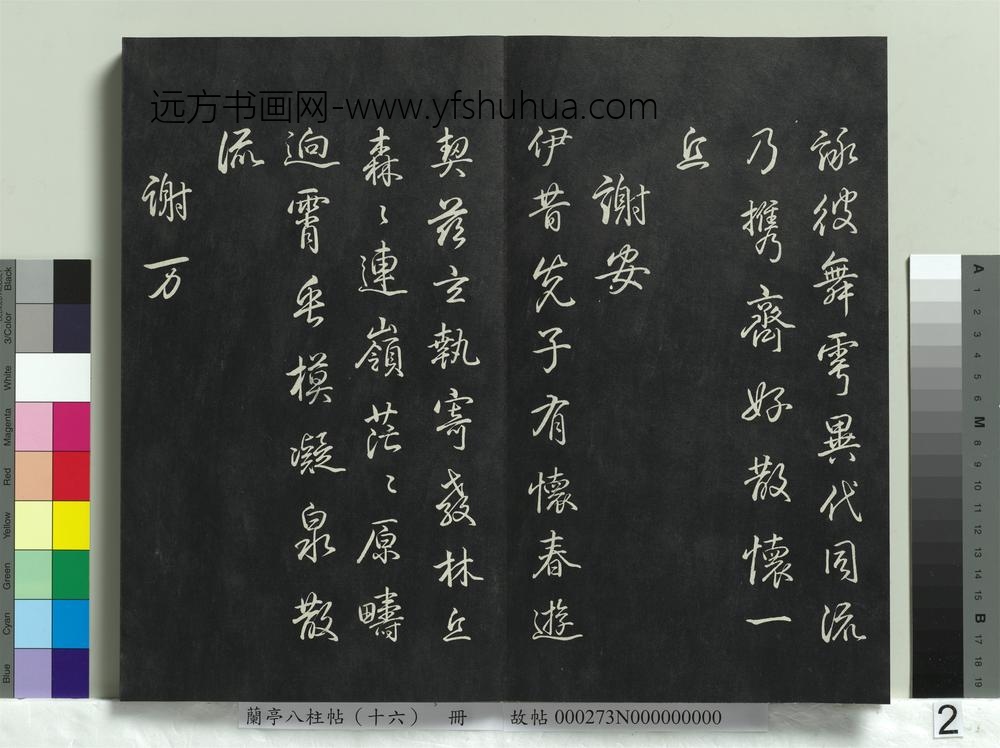 远方书画网-www.yfshuhua.com
詠彼舞雩異代同流
乃携齊好散懷一
丘
謝安
伊昔先子有懷春遊
契茲言執寄敖林丘
森〻連嶺茫〻原疇
迥霄垂模凝泉散
流
謝万
蘭亭八柱帖（十六） 冊 故帖 000273N000000000
2
Black
3/Color
White
Magenta
Red
Yellow
Green
Cyan
Blue
A 1 2 3 4 5 6 M 8 9 10 11 12 13 14 15 B 17 18 19